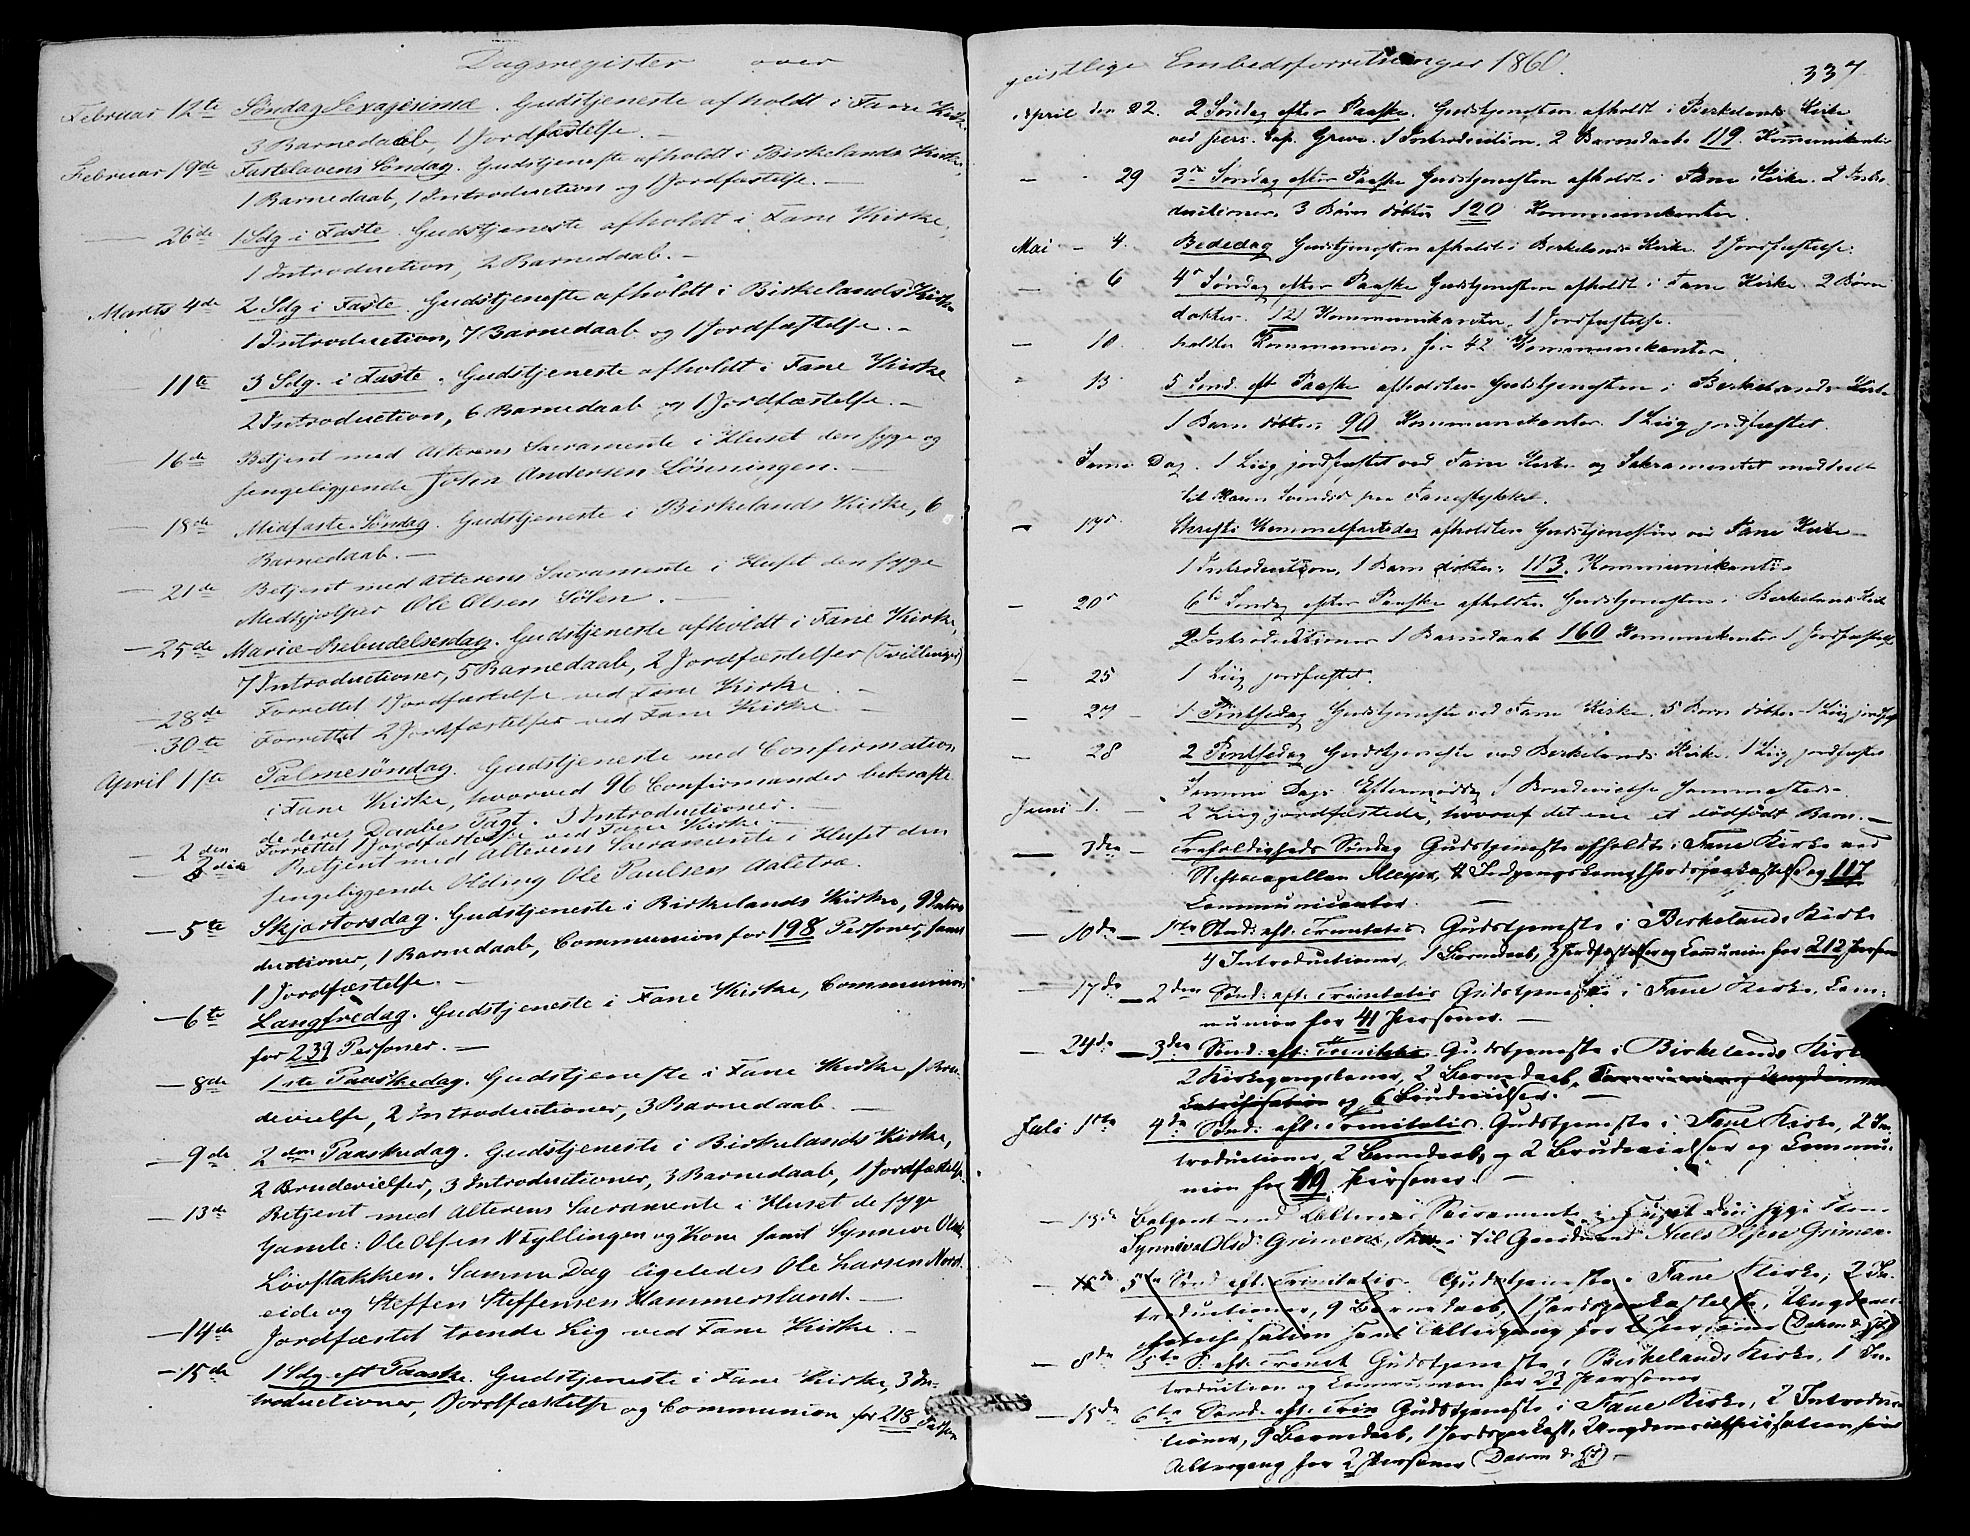 Dagsregister over
Februar 12te Søndag Sexagesima. Gudstjeneste afholdt i Fane Kirke,
3 Barnedaab, 1 Jordfæstelse. —
Februar 19de Fastelavens Søndag. Gudstjeneste afholdt i Birkelands Kirke,
1 Barnedaab, 1 Introduction og 1 Jordfæstelse. —
— 26de 1 Sdg i Faste. Gudstjeneste afholdt i Fane Kirke,
1 Introduction, 2 Barnedaab. —
Marts 4de 2 Sdg i Faste. Gudstjeneste afholdt i Birkelands Kirke
1 Introduction, 7 Barnedaab og 1 Jordfæstelse. —
— 11te 3 Sdg. i Faste. Gudstjeneste afholdt i Fane Kirke
2 Introduction, 6 Barnedaab og 1 Jordfæstelse. —
— 16de Betjent med Alterens Sacramente i Huset den syge og
sengeliggende John Andersen Lönningen. —
— 18de Midfaste-Søndag. Gudstjeneste i Birkelands Kirke, 6
Barnedaab. —
— 21de Betjent med Alterens Sacramente i Huset den syge
Medhjælper Ole Olsen Sölen. —
— 25de Mariæ Bebudelsesdag. Gudstjeneste afholdt i Fane Kirke,
7 Introductioner, 5 Barnedaab, 2 Jordfæstelser (Tvillinger)
— 28de Forrettet 1 Jordfæstelse ved Fane Kirke. —
— 30te Forrettet 2 Jordfæstelser ved Fane Kirke —
April 1ste Palmesøndag. Gudstjeneste med Confirmation
i Fane Kirke, hvorved 96 Confirmander bekræfte
de deres Daabes Pagt. 3 Introductioner. —
— 2den Forrettet 1 Jordfæstelse ved Fane Kirke. —
Betjent med Alterens Sacramente i Huset den
sengeliggende Olding Ole Paulsen Aaletræ.
— 5te Skjærtorsdag. Gudstjeneste i Birkelands Kirke, 9 Intro
ductioner, 1 Barnedaab, Communion for 198 Personer, samt
1 Jordfæstelse. —
— 6te Langfredag. Gudstjeneste i Fane Kirke, Communion
for 239 Personer. —
— 8de 1ste Paaskedag. Gudstjeneste i Fane Kirke, 1 Bru-
devielse, 2 Introductioner, 3 Barnedaab. —
— 9de 2den Paaskedag. Gudstjeneste i Birkelands Kirke,
2 Brudevielser, 3 Introductioner, 3 Barnedaab, 1 Jordfæstelse.
— 13de Betjent med Alterens Sacramente i Huset de syge
Gamle: Ole Olsen Nøyllingen og Kone samt Synneve Olsd.
Løvstakken. Samme Dag ligeledes Ole Larsen Nord
eide og Steffen Steffensen Hammersland. —
— 14de Jordfæstet trende Lig ved Fane Kirke. —
— 15de 1 Sdg eft Paaske. Gudstjeneste i Fane Kirke, 3 In-
troductioner, 1 Jordfæstelse og Communion for 218 Person
geistlige Embedsforretninger 1860. 337
April den 22. 2 Søndag efter Paaske. Gudstjenesten afholdt i Birkelands Kirke
ved pers. Cap. Greve. 1 Introduction. 2 Barnedaab 119 Kommunikanter
— 29 3de Søndag efter Paaske Gudstjenesten afholdt i Fane Kirke. 2 Intro
ductioner, 3 Børn døbte, 120 Kommunikanter.
Mai — 4. Bededag Gudstjenesten afholdt i Birkelands Kirke. 1 Jordfæstelse.
— 6 4de Søndag efter Paaske Gudstjenesten afholdt i Fane Kirke. 2 Børn
døbtes. 121 Kommunikanter, 1 Jordfæstelse.
— 10. holdtes Kommunion for 42 Kommunikanter.
13 5 Sønd. eft Paaske afholdtes Gudstjenesten i Birkelands Kirke
1 Barn døbtes, 90 Kommunikanter. 1 Liig jordfæstet.
Samme Dag. 1 Liig jordfæstet ved Fane Kirke og Sakramentet meddeelt
til Karen Svendsd paa Fanestykket.
— 17de Christi Himmelfartsdag afholdtes Gudstjenesten ved Fane Kirke —
1 Introduction, 1 Barn døbtes. 113. Kommunikanter
— 20de 6te Søndag efter Paaske afholdtes Gudstjenesten i Birkelands Kirke
2 Introductioner 1 Barnedaab 160 Kommunikanter 1 Jordfæstelse
— 25 1 Liig jordfæstet.
— 27 — 1. Pintsedag Gudstjeneste ved Fane Kirke. 5 Børn døbte. 1 Liig jordf
— 28 2 Pintsedag Gudstjeneste ved Birkelands Kirke. 1 Liig jordfæstes
Samme Dags Eftermiddag 1 Brudevielse sammesteds.
Juni 1. — 2 Liig jordfæstede, hvoraf det ene et dødfødt Barn. —
— 3die — Trefoldigheds Søndag Gudstjeneste afholdt i Fane Kirke ved
Stiftscapellan Meyer, 4 Indgangskoner, 1 Jordspaakastelse og 117
Communicanter. —
— 10de — 1ste Sønd: eft. Trinitatis Gudstjeneste i Birkelands Kirke
4 Introductioner, 1 Barnedaab, 3 Jordfæstelser og Communion for 212 Personer
— 17de — 2den Sønd: eft. Trinitatis Gudstjeneste i Fane Kirke, Com-
munion for 41 Personer. —
— 24de — 3die Sønd: eft: Trinitatis Gudstjeneste i Birkelands Kirke
2 Kirkegangskoner, 2 Barnedaab,
og 6 Brudevielser. —
Juli 1ste 4de Sønd: eft: Trinitatis. Gudstjeneste i Fane Kirke, 2 In-
troductioner, 2 Barnedaab, og 2 Brudevielser og Commu-
nion for 19 Personer. —
— 13de Betjent med Alterens Sacramente i Huset den syge
Synnive Olsd: Grimen, til Gaardmand Niels Olsen Grimen
5te Sønd eft. Trinitatis. Gudstjeneste i Fane Kirke, 2 In-
troductioner, 9 Barnedaab, 1 Jordspaakastelse, Ungdoms-
catechisation samt Altergang for 2 Personer
— 8de 5te S. eft. Trinit Gudstjeneste i Birkelands Kirke, 1 In-
troduction og Communion for 23 Personer
— 15de 6te Sønd. eft. Trin Gudstjeneste i Fane Kirke, 2 Introduc
tioner, 9 Barnedaab, 1 Jordspaakast, Ungdomscatechisation samt
Altergang for 2 Personer